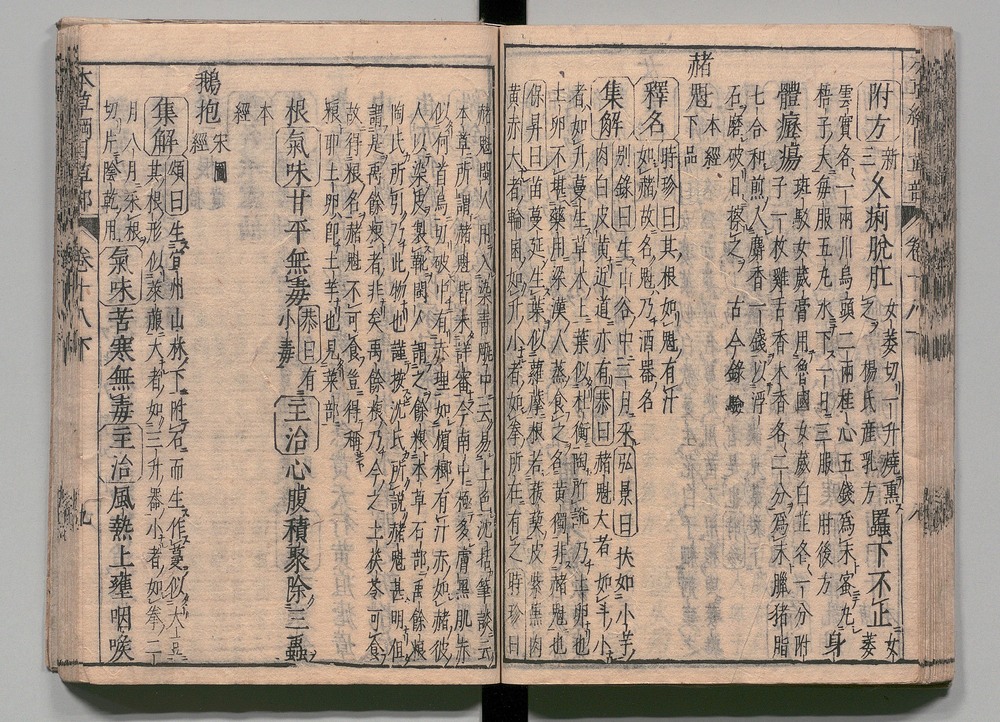 附方 新三 久痢脫肛 女萎切一升燒熏之 楊氏産乳方 䘌下不正 女萎
雲實各一兩川烏頭二兩桂心五錢爲末蜜丸
梧子大毎服五丸水下一日三服 肘後方 身
體癧瘍 斑駁女葳膏用魯國女葳白芷各一分附
子一枚雞舌香木香各二分爲末臘猪脂
七合和煎入麝香一錢以浮
石磨破日擦之 古今錄驗
赭魁 本經下品
釋名 時珍曰其根如魁有汁
如赭故名魁乃酒器名
集解 别錄曰生山谷中二月采弘景曰狀如小芋
肉白皮黄近道亦有恭曰赭魁大者如斗小
者如升蔓生草木上葉似杜衡陶所說乃土卵也
土卵不堪藥用梁漢人蒸食之名黄獨非赭魁也
保昇曰苗蔓延生葉似蘿藦根若菝葜皮紫黑肉
黄赤大者輪囷如升小者如拳所在有之時珍曰
赭魁閩人用入染青缸中云易上色沈括筆談云
本草所謂赭魁皆未詳審今南中極多膚黑肌赤
似何首烏切破中有赤理如檳榔有汁赤如赭彼
人以染皮製靴閩人謂之餘粮本草石部禹餘粮
陶氏所引乃此物也謹按沈氏所說赭魁甚明但
謂是禹餘粮者非矣禹餘粮乃今之土茯苓可食
故得粮名赭魁不可食豈得稱
粮耶土卵卽土芋也見菜部
根氣味甘平無毒 恭曰有小毒 主治心腹積聚除三蟲
本經
鵝抱 宋圖經
集解 頌曰生宜州山林下附石而生作蔓似大豆
其根形似萊菔大者如三升器小者如拳二
月八月采根
切片陰乾用 氣味苦寒無毒主治風熱上壅咽喉
卷十八下
九